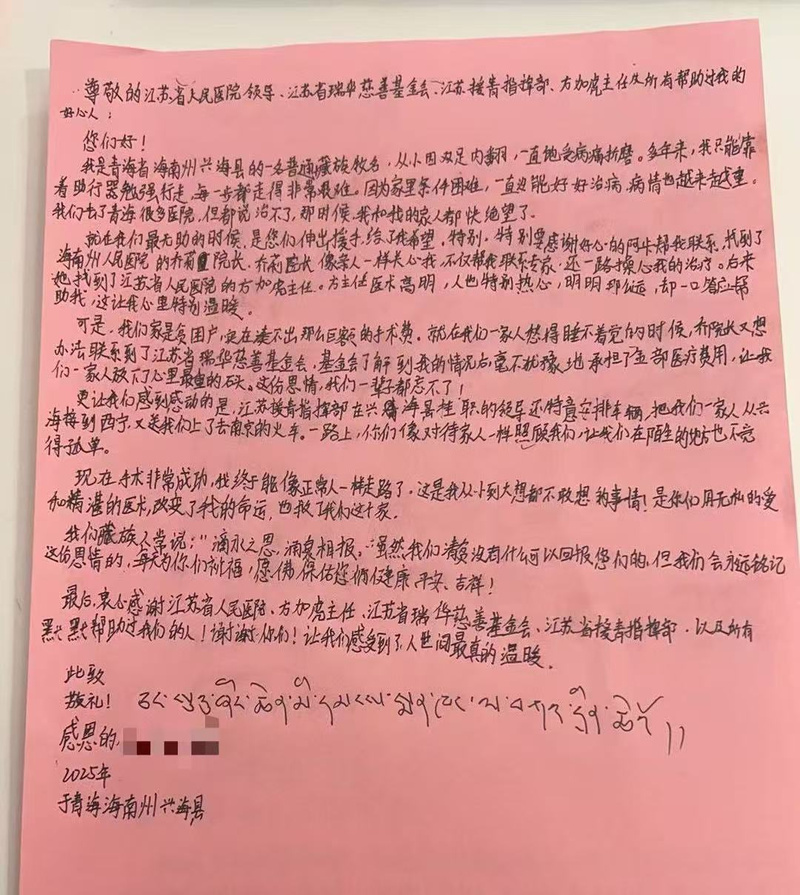 尊敬的江苏省人民医院领导、江苏省瑞华慈善基金会、江苏援青指挥部、方加虎主任及所有帮助过我的
好心人:
您们好!
我是青海省海南州兴海县的一名普通藏族牧名,从小因双足内翻,一直饱受病痛折磨。多年来,我只能靠
着助行器勉强行走,每一步都走得非常艰难。因为家里条件困难,一直好好治病,病情也越来越重。
我们去了青海很多医院,但都说治不了,那时候,我和我的家人都快绝望了。
就在我们最无助的时候,是您们伸出援手,给了我希望,特别,特别要感谢好心的阿卡帮我联系,找到了
海南州人民医院的乔莉院长,乔莉院长像亲人一样关心我,不仅帮我联系专家,还一路操心我的治疗。后来
她找到了江苏省人民医院的方加虎主任。方主任医术高明,人也特别热心,明明那么远,却一口答应帮
助我,这让我心里特别温暖。
可是,我们家是贫困户,实在凑不出那么巨额的手术费。就在我们一家人愁得睡不着觉的时候,乔院长又想
办法联系到了江苏省瑞华慈善基金会,基金会了解到我的情况后毫不犹豫地承担了全部医疗费用,让我
们一家人放下了心里最重的石头。这份恩情,我们一辈子都忘不了!
更让我们感到感动的是,江苏援青指挥部在兴海县挂职的领导还特意安排车辆,把我们一家人从兴
海接到西宁,又送我们上了去南京的火车。一路上,你们像对待家人一样照顾我们,让我们在陌生的地方也不觉
得孤单。
现在手术非常成功,我终于能像正常人一样走路了,这是我从小到大想都不敢想的事情!是你们用无私的爱
和精湛的医术,改变了我的命运,也救了我们这个家。
我们藏族人常说:"滴水之恩,涌泉相报。"虽然我们清贫没有什么可以回报您们的,但我们会永远铭记
这份恩情的,每天为你们祈福,愿佛保佑您俩健康、平安、吉祥!
最后,衷心感谢江苏省人民医院、方加虎主任、江苏省瑞华慈善基金会、江苏省援青指挥部,以及所有
默默帮助过我们的人!谢谢你们!让我们感受到了人世间最真的温暖。
此致
敬礼!
感恩的,
2025年
于青海海南州兴海县